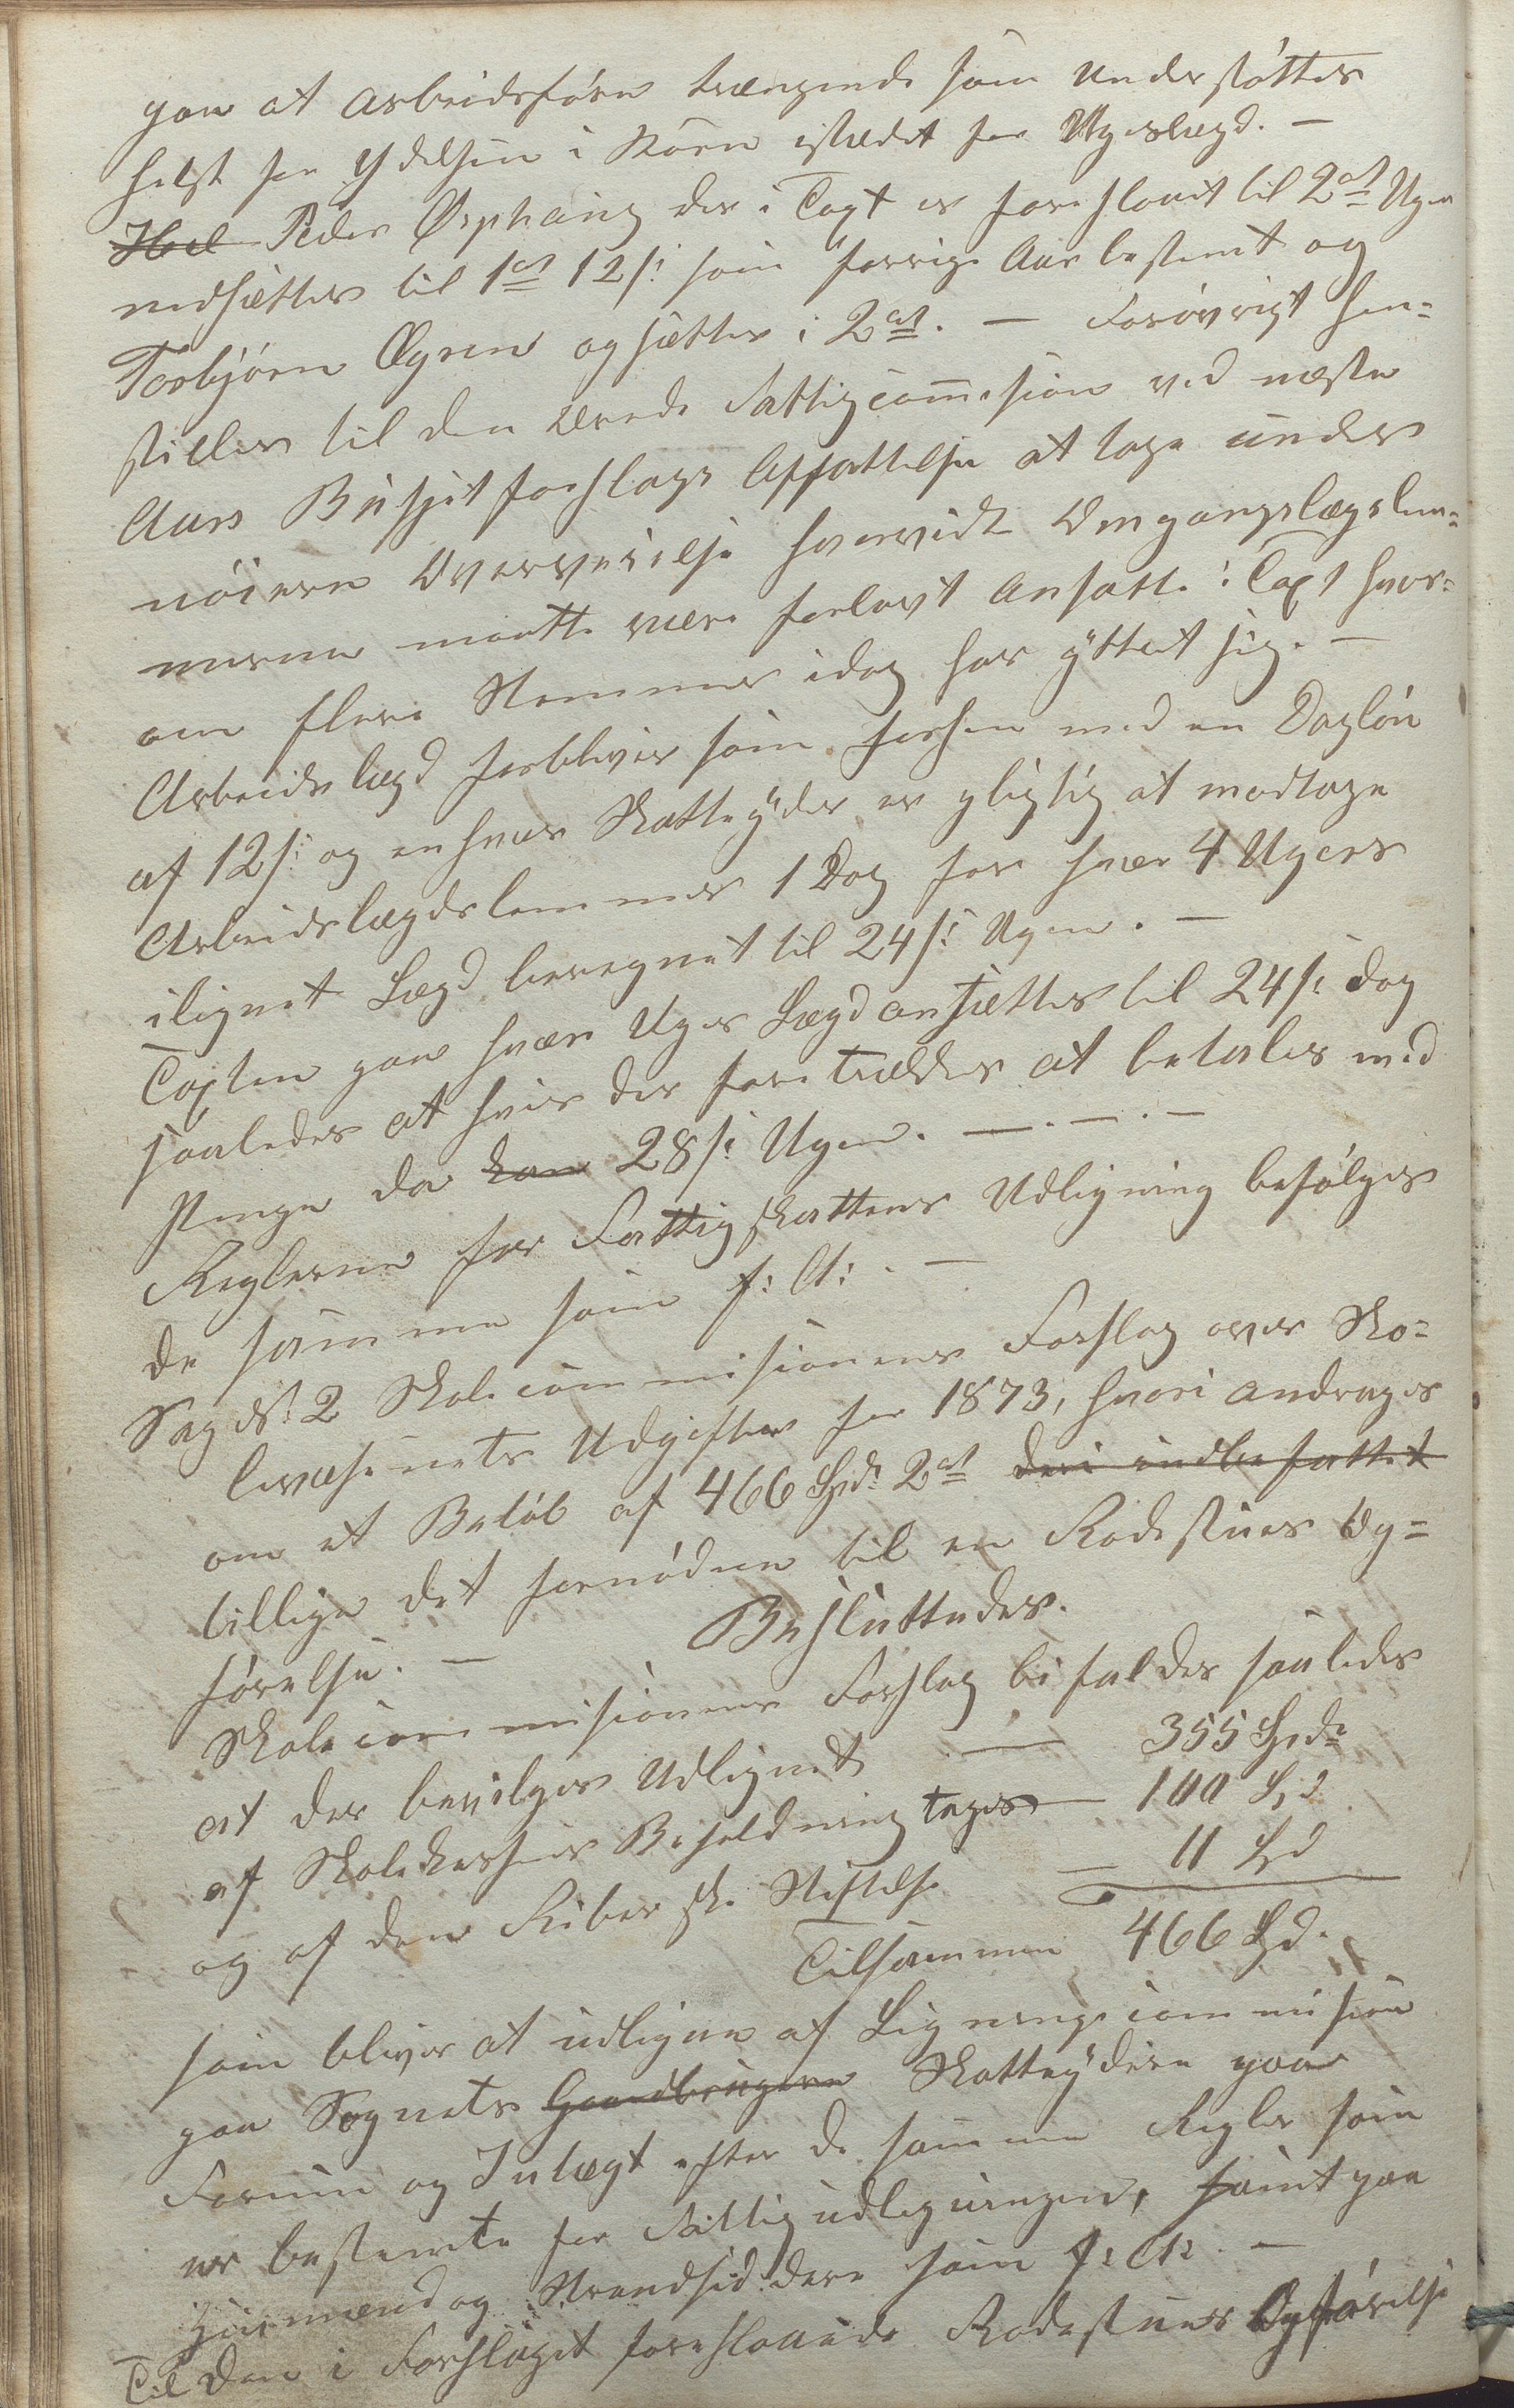 paa at arbeidsføre trængende som understøttes
helst for Ydelsen i Korn istædet for Ugeslægd. —
Hel Peder Ørphaug der i Taxt er foreslaaet til 2 ort Ugen
nedsættes til 1 ort 12 s: som forrige Aar bestemt og
Torbjørn Øyren opsættes i 2 ort. — Forøvrigt hen-
stilles til den ærede Fattigcommision ved næste
Aars Busjetforslags Affattelse at tage under
nøiere Overveielse hvorvidt Omgangslægslem-
merne maatte være forlavt Ansatte i Taxt hvor-
om flere Stemmer idag har ÿttret sig. —
Arbeidslægd forblives som forhen med en Dagløn
af 12 s: og enhver Skatteÿder er pligtig at modtage
Arbeidslægdslemmer 1 Dag for hver 4 Ugers
ilignet Lægd beregnet til 24 s: Ugen. —
Taxten paa hver Uges Lægd ansættes til 24 s: dog
saaledes at hvis der foretrækkes at betales med
Penge da kan 28 s: Ugen. — . — . —
Reglerne for Fattigskattens Udligning befølges
de samme som f: A: . —
Sag No: 2 Skolecommisionens Forslag over Sko-
levæsenets Udgifter for 1873, hvori andrages
om et Beløb af 466 Spd: 2 ort deri indbefattet
tillige det fornødne til en Rodestues Op-
førelse. —
Besluttedes.
Skolecommisionens Forslag bifaldes saaledes
at der bevilges Udlignet — 355 Spd:
af Skolekassens Beholdning tages — 100 Spd
og af den Riberske Stiftelse — 11 Spd
Tilsammen 466 Spd.
som bliver at udligne af Ligningscommision
paa Sognets Gaardbrugere Skatteÿdere paa
Formue og Intægt efter de samme Regler som
er bestemte for Fattigudligningen, samt paa
Huusmænd og Strandsiddere som f: A: . —
Til den i Forslaget foreslaaede Rodestues Opførelse